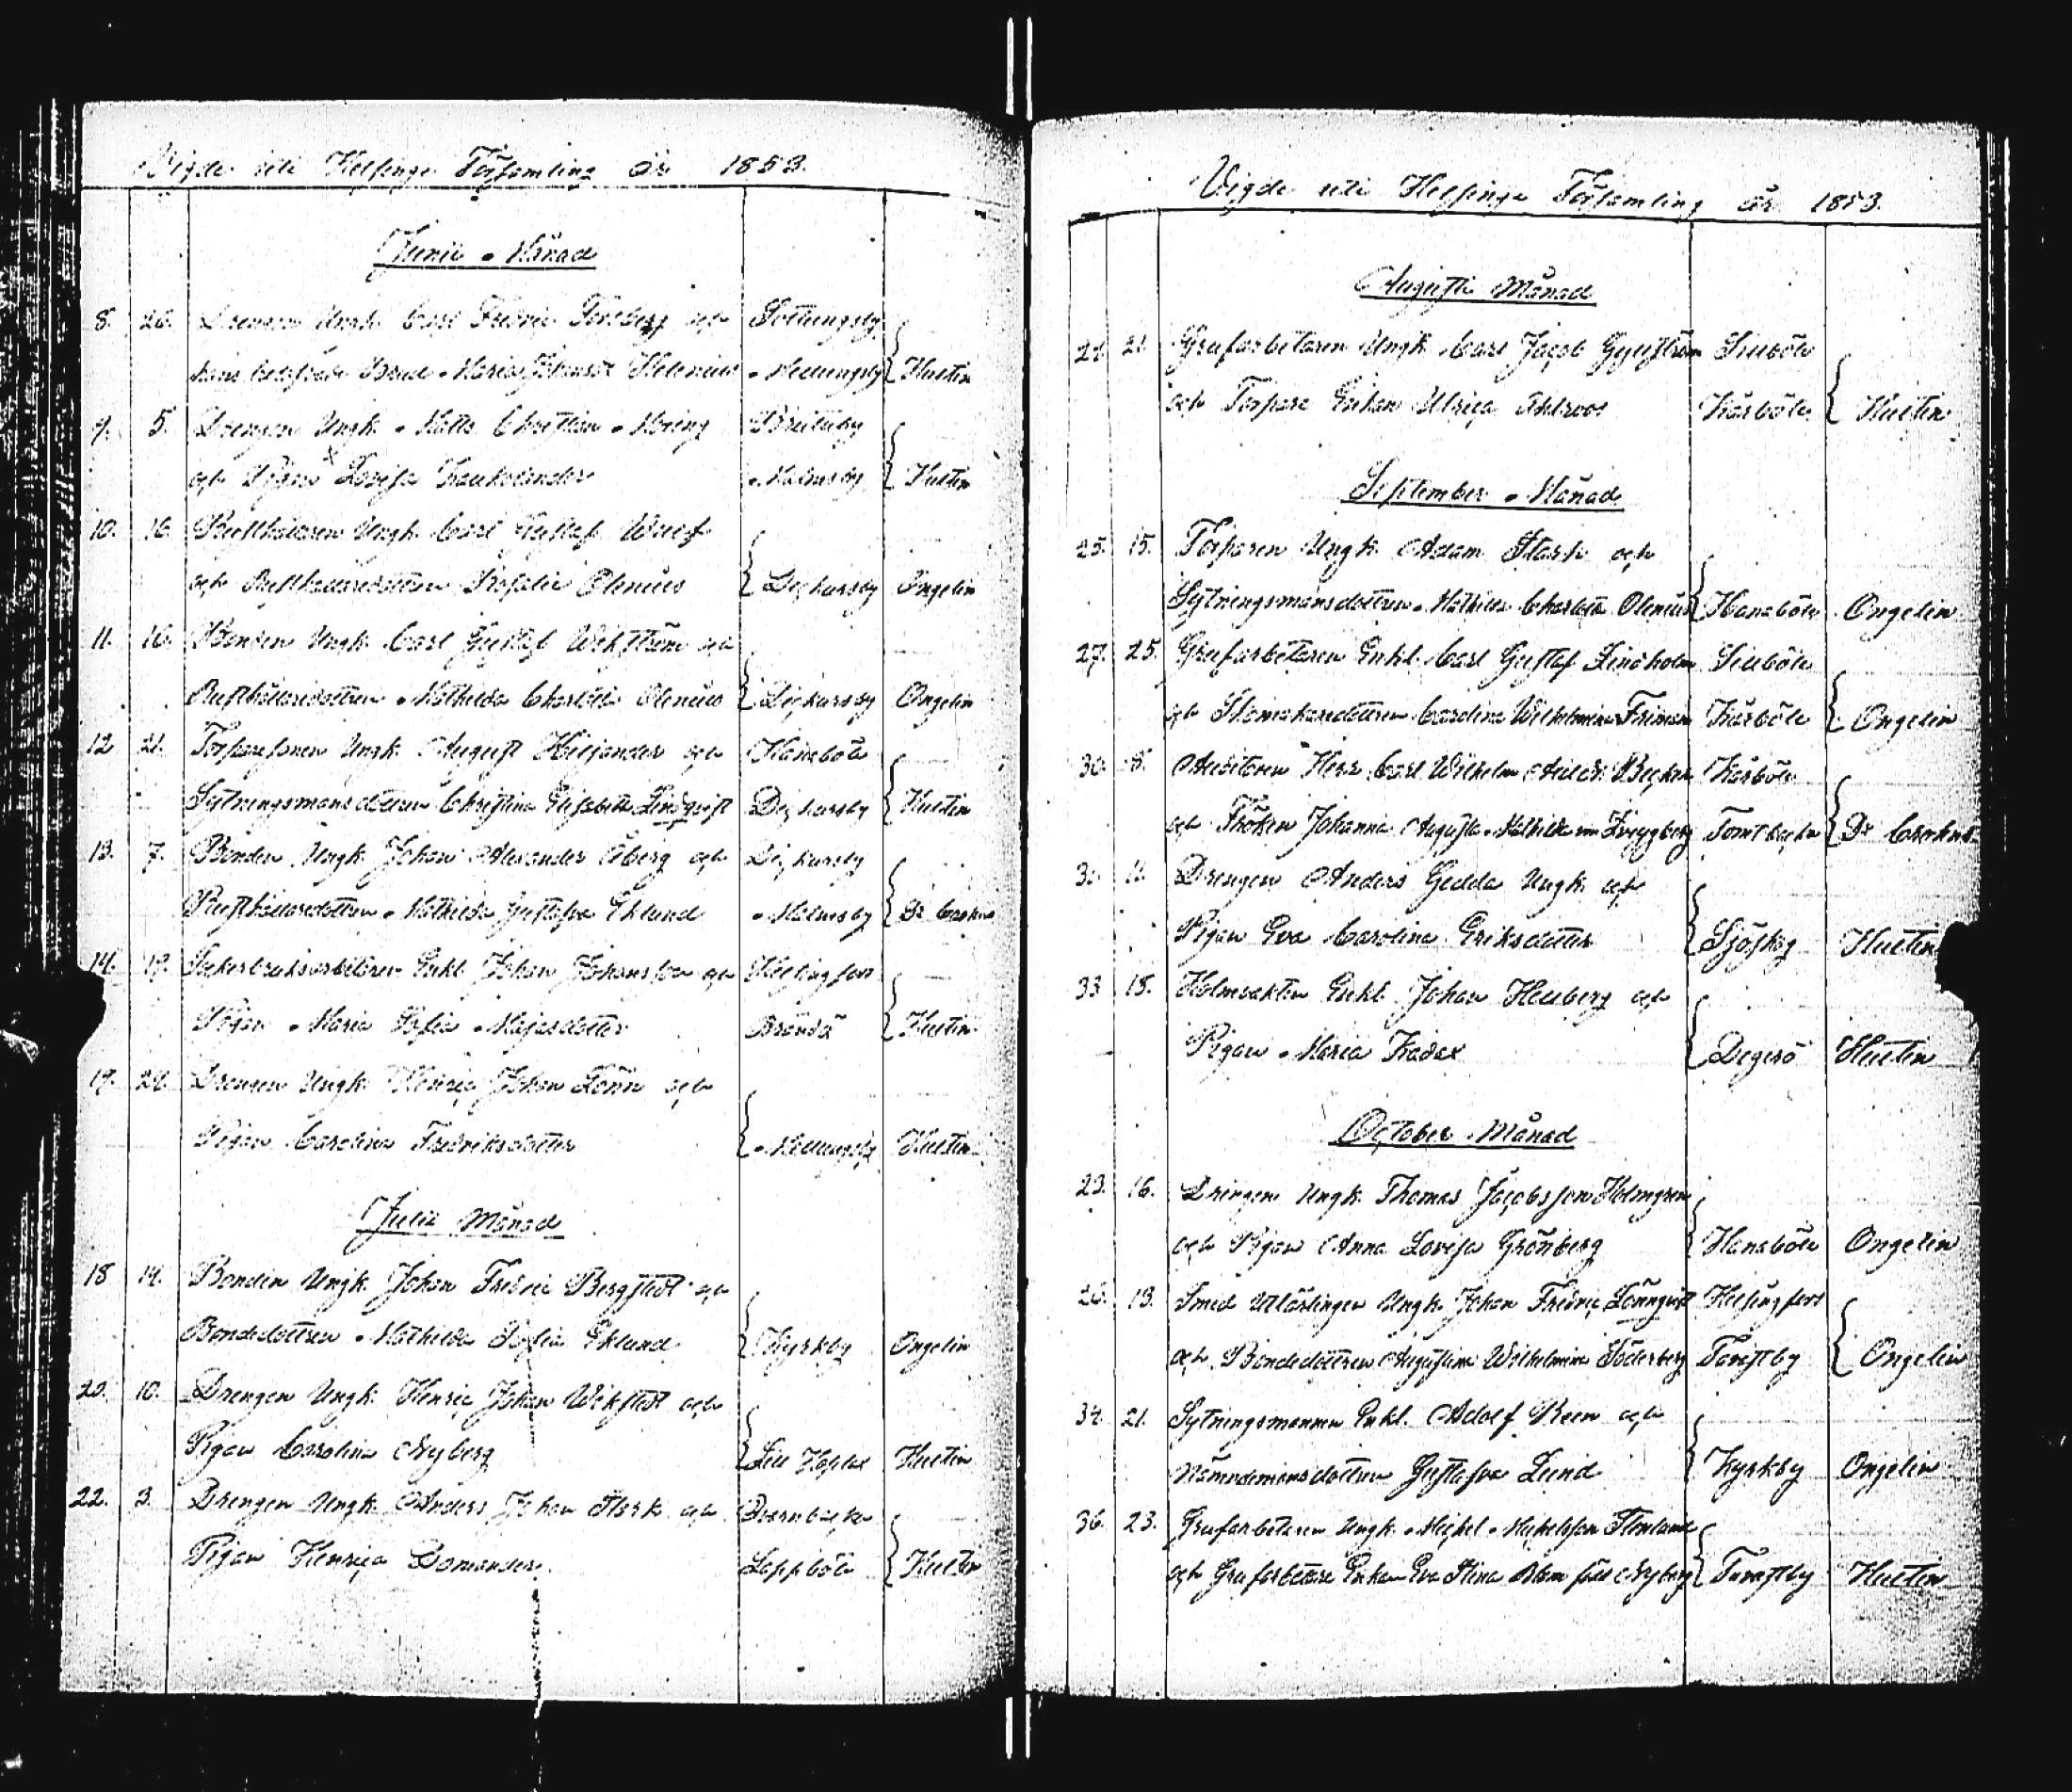 Vigde uti Helsinge Församling år 1853.
Junii Månad
8. 26. Drengen Ungk. Carl Fredric Forsberg och Sottungsby
hans Brud Maria Helenius Mellungsby Hultin
9. 5. Drengen Ungk. Matts Christian Böleby
och Pigan Lovisa Malmsby Hultin
10. 16. Rusthållaren Ungk. Carl Gustaf Wulf
och Rusthållaredottren Rosalie Olenius Dickursby Ongelin
11. 16. Bonden Ungk. Carl Gustaf Wikström och
Rusthållaredottren Mathilda Charlotta Olenius Dickursby Ongelin
12. 21. Torparesonen Ungk. August Heijander och Hanaböle
Sytningsmansdottren Christina Elisabeth Lindqvist Dickursby Hultin
13. 7. Bonden Ungk. Johan Alexander Åberg och Dickursby
Rusthållaredottren Mathilda Gustafva Eklund Malmsby Dr Crohns
14. 19. Sockerbruksarbetaren Enkl. Johan Johansson och Helsingfors
Pigan Maria Sofia Majasdotter Brändö Hultin
19. 24. Drengen Ungk. Henric Johan Lönn och
Pigan Carolina Fredriksdotter Mellungsby Hultin
Julii Månad
18 14. Bonden Ungk. Johan Fredric Bergstedt och
Bondedottren Mathilda Sofia Eklund Kyrkby Ongelin
20. 10. Drengen Ungk. Henric Johan Wikstedt och
Pigan Carolina Nyberg Lill Hoplax Hultin
22. 3. Drengen Ungk. Anders Johan Stark och Qvarnbacka
Pigan Henrica Domander Lappböle Hultin
Vigde uti Helsinge Församling år 1853.
Augusti Månad
24. 21. Grufarbetaren Ungk. Carl Jacob Gyllström Sillböle
och Torpare Enkan Ulrica Ahlroos Kårböle Hultin
September Månad
25. 15. Torparen Ungk. Adam Stark och
Sytningsmansdottren Mathilda Charlotta Olenius Hanaböle Ongelin
27. 25. Grufarbetaren Enkl. Carl Gustaf Lindholm Sillböle
och Skomakaredottren Carolina Wilhelmina Friman Kårböle Ongelin
30. 8. Auditoren Herr Carl Wilhelm Becker Kårböle
och Fröken Johanna Augusta Mathilda von Tomtbacka Dr Crohns
31. 11. Drengen Anders Gedda Ungk. och
Pigan Eva Carolina Eriksdotter Sjöskog Hultin
33 18. Holmvakten Enkl. Johan Hellberg och
Pigan Maria Degerö Hultin
October Månad
23. 16. Drengen Ungk. Thomas Jacobsson Holmgren
och Pigan Anna Lovisa Grönberg Hanaböle Ongelin
26. 13. Smed Utlärlingen Ungk. Johan Fredric Lönnqvist Helsingfors
och Bondedottren Augustina Wilhelmina Söderberg Tavastby Ongelin
34. 21. Sytningsmannen Enkl. Adolf Reen och
Nämndemansdottren Gustafva Lund Kyrkby Ongelin
36. 23. Grufarbetaren Ungk. Michel Michelsson Stenland
och Grufarbetare Enkan Eva Stina Blom född Nyberg Tavastby Hultin